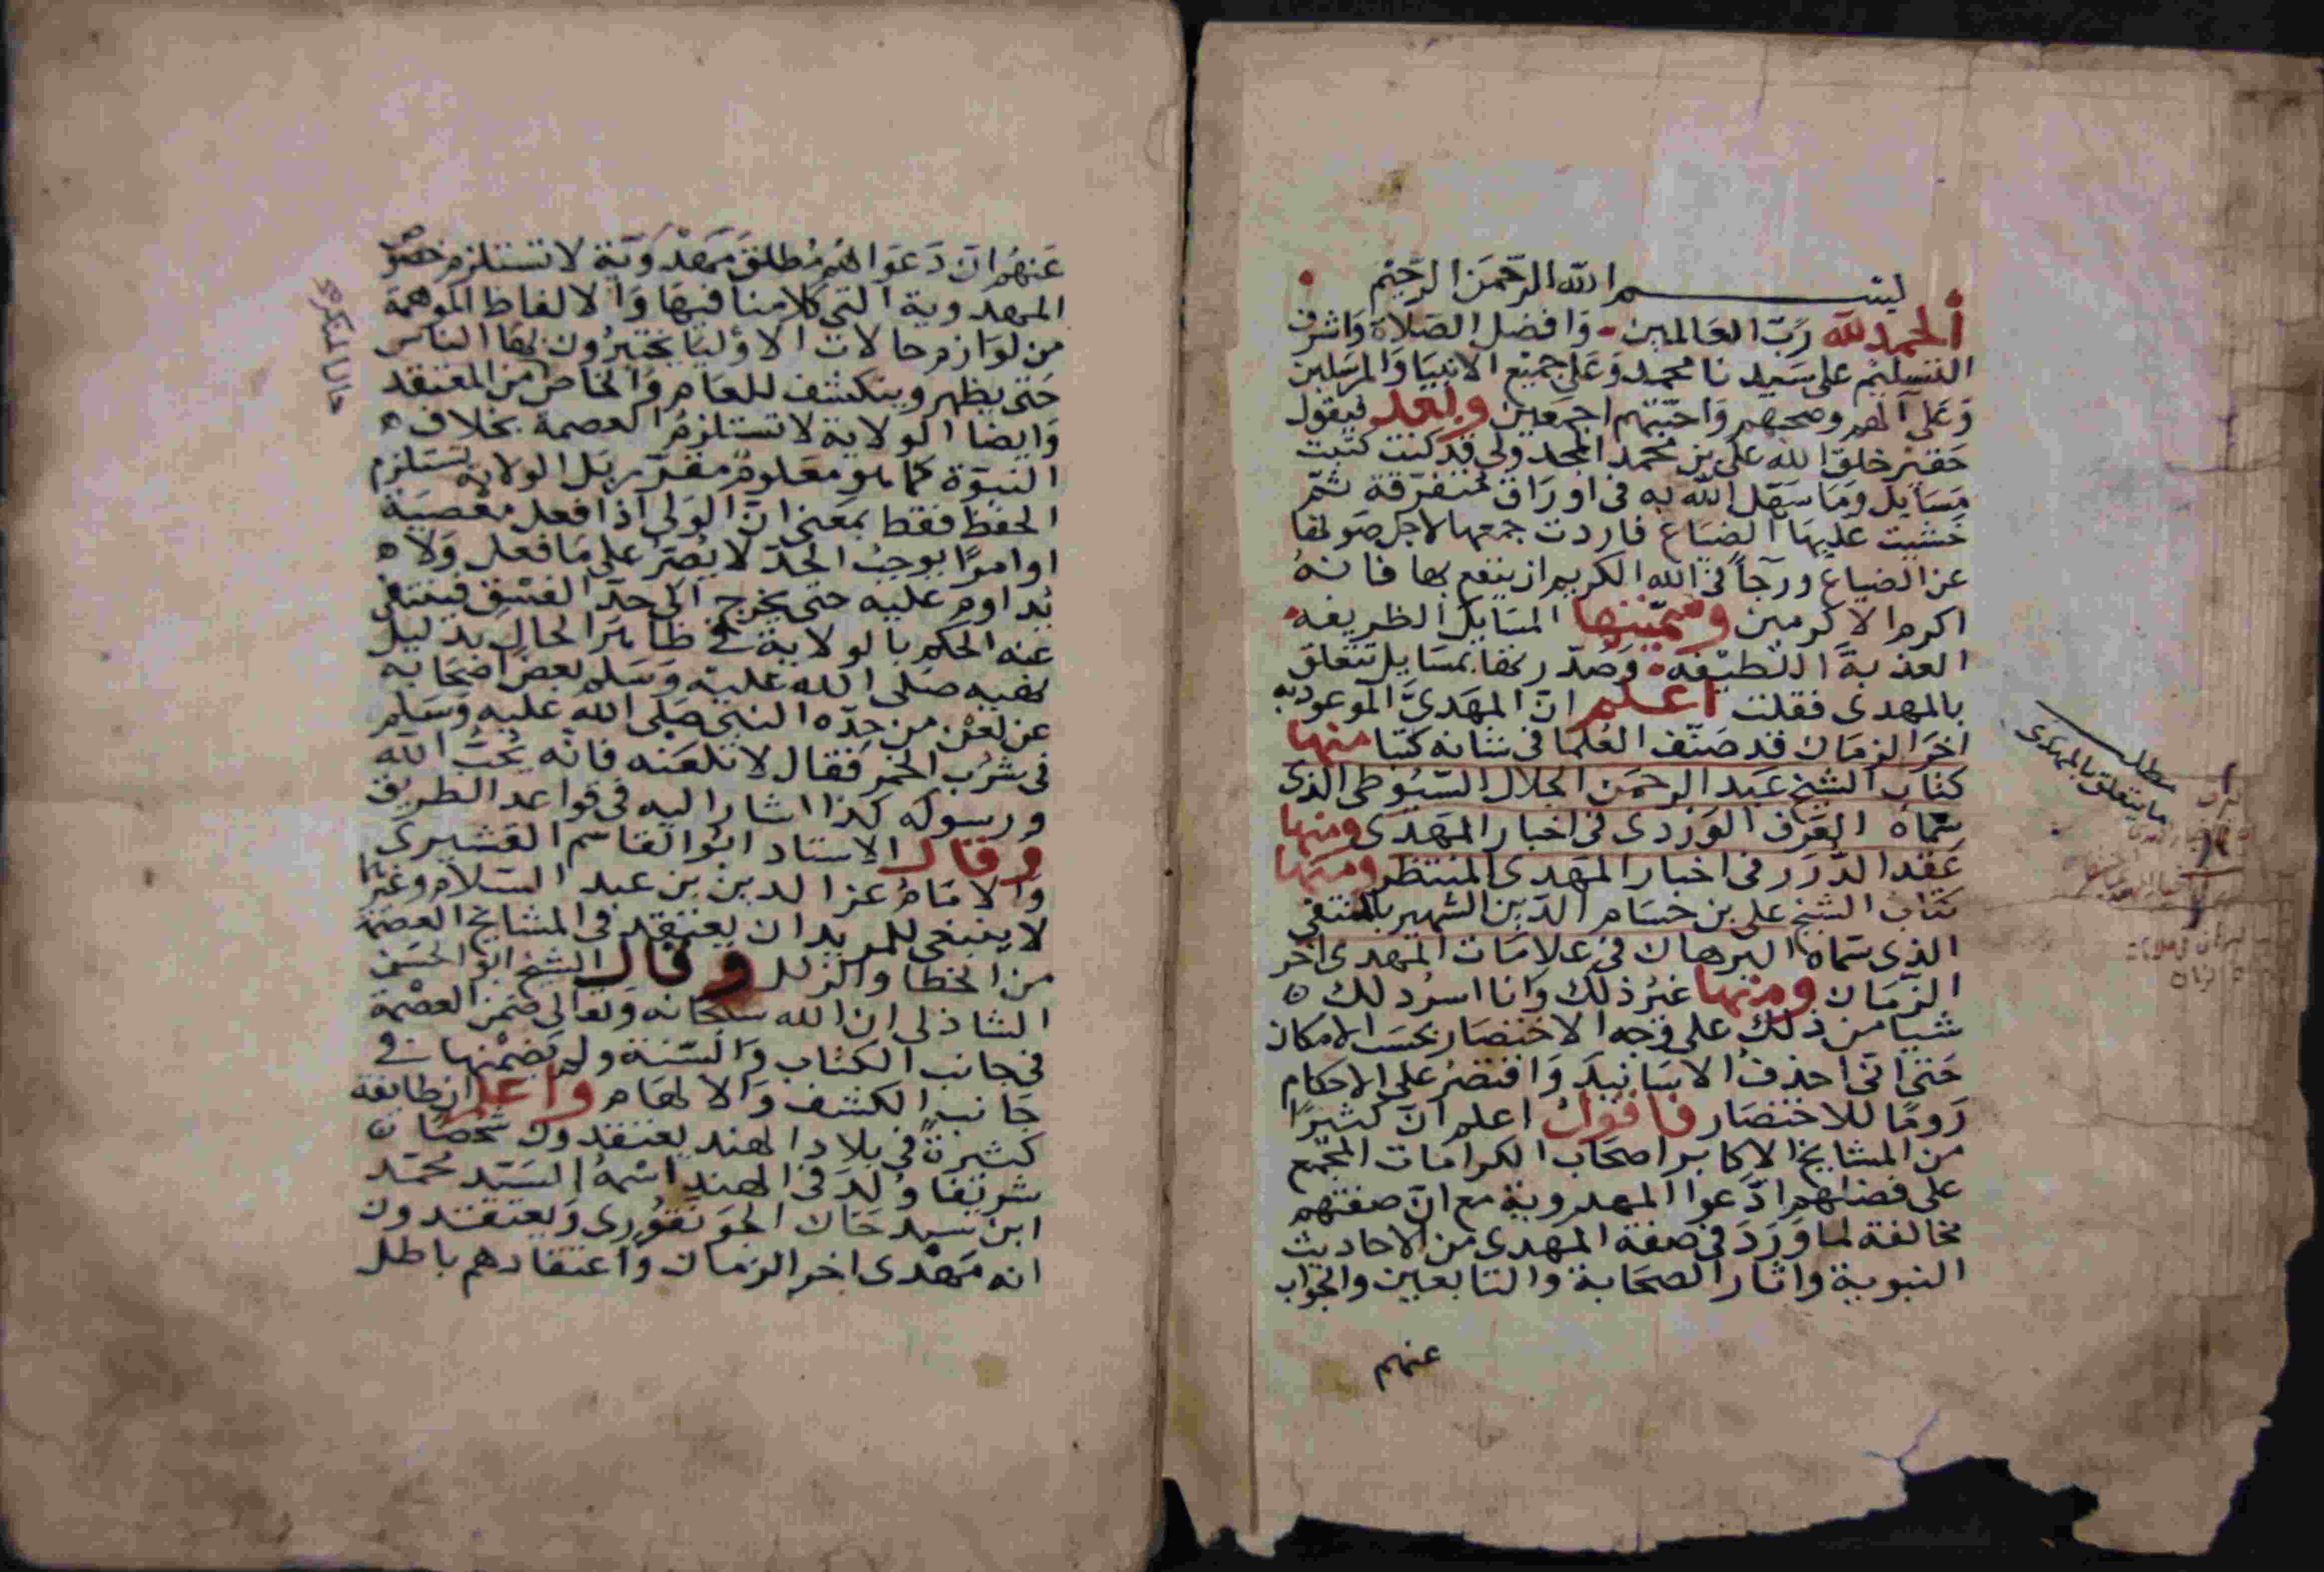 بسم الله الرحمن الرحيم
الحمد لله رب العالمين وافضل الصلاة واشرف
التسليم على سيدنا محمد وعلى جميع الانبيا والمرسلين
وعلى آلهم وصحبهم واحبتهم اجمعين وبعد فيقول
حقير خلق الله على بن محمد قد كنت كتبت
مسايل وما سهل الله به في اوراق متفرقة ثم
خشيت عليها الضياع فاردت جمعها لاجل صونها
عن الضياع ورجآ في الله الكريم ان ينفع بها فانه
اكرم الاكرمين وسميتها المسايل الظريفه
العذبة اللطيفه وصدرتها بمسايل تتعلق
بالمهدى فقلت اعلم ان المهدى الموعود به
اخر الزمان قد صنف العلما في شانه كتبا منها
كتاب الشيخ عبد الرحمن الجلال السيوطى الذى
سماه العرف الوردى في اخبار المهدى ومنها
عقد الدرر في اخبار المهدى المنتظر ومنها
كتاب الشيخ على بن حسام الدين الشهير بالمتقى
الذى سماه البرهان في علامات المهدى اخر
الزمان ومنها غير ذلك وانا اسرد لك
شيا من ذلك على وجه الاختصار بحسب الامكان
حتى انى احذف الاسانيد واقتصر على الاحكام
روما للاختصار فاقول اعلم ان كثيرا
من المشايخ الاكابر اصحاب الكرامات المجمع
على فضلهم ادعوا المهدوية مع ان صفتهم
مخالفة لما ورد في صفة المهدى من الاحاديث
النبوية واثار الصحابة والتابعين والجواب
عنهم
مطلب
ما يتعلق بالمهدى
عنهم ان دعواهم مطلق مهدوية لا تستلزم خصوص
المهدوية التى كلامنا فيها والالفاظ الموهمة
من لوازم حالات الاوليا يختبرون بها الناس
حتى يظهر وينكشف للعام والخاص من المعتقد
وايضا الولاية لا تستلزم العصمة بخلاف
النبوة كما هو معلوم مقرر بل الولاية تستلزم
الحفظ فقط بمعنى ان الولى اذا فعل معصية
او امرا يوجب الحد لا يصر على ما فعل ولا
يداوم عليه حتى يخرج الى حد الفسق فينتفى
عنه الحكم بالولاية في ظاهر الحال بدليل
نهيه صلى الله عليه وسلم بعض اصحابه
عن لعن من حده النبى صلى الله عليه وسلم
في شرب الخمر فقال لا تلعنه فانه يحب الله
ورسوله كذا اشار اليه في قواعد الطريق
وقال الاستاد ابو القاسم القشيرى
والامام عز الدين بن عبد السلام وغيرهما
لا ينبغى للمريد ان يعتقد في المشايخ العصمة
من الخطا والزلل وقال الشيخ ابو الحسن
الشاذلى ان الله سبحانه وتعالى ضمن العصمة
في جانب الكتاب والسنة ولم يضمنها في
جانب الكشف والالهام واعلم ان طايفة
كثيرة في بلاد الهند يعتقدون شخصا
شريفا ولد في الهند اسمه السيد محمد
ابن سيد خان الجونفورى ويعتقدون
انه مهدى اخر الزمان واعتقادهم باطل